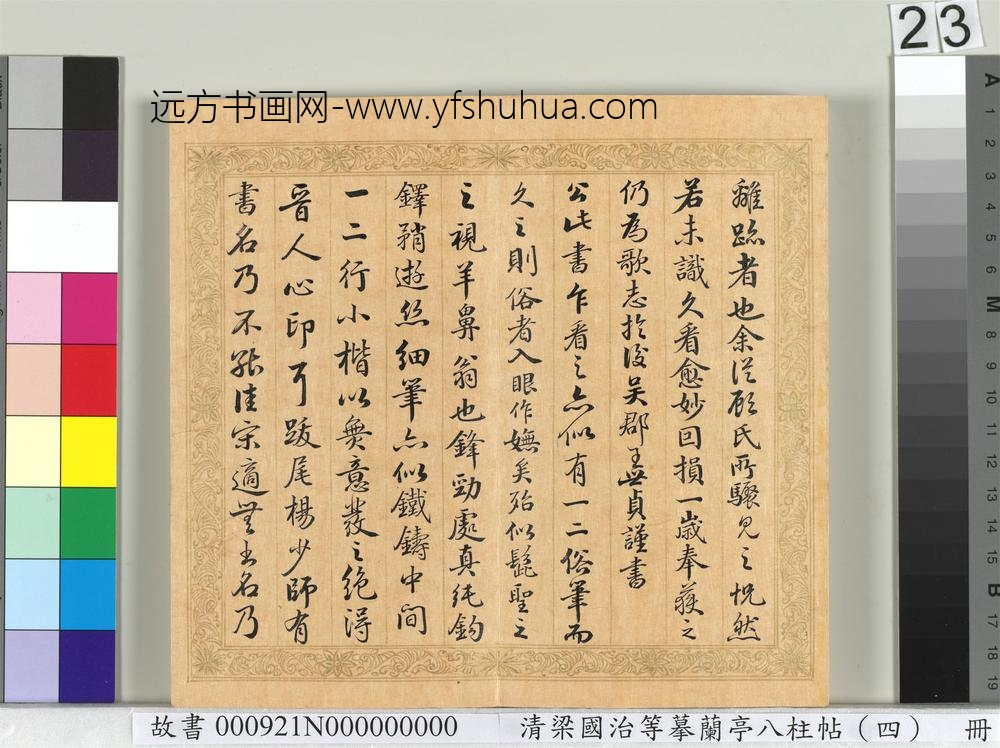 23
远方书画网-www.yfshuhua.com
離跡者也余從顧氏所驟見之怳然
若未識久看愈妙因損一歲奉獲之
仍為歌志於後吳郡王無貞謹書
公此書乍看之亦似有一二俗筆而
久之則俗者入眼作嫵矣殆似髭聖之
之視羊鼻翁也鋒勁處真純鉤
鐸矟遊絲細筆亦似鐵鑄中間
一二行小楷以無意發之絕得
晉人心印耳跋尾楊少師有
書名乃不能佳宋適無書名乃
故書 000921N000000000 清梁國治等摹蘭亭八柱帖（四） 冊
A 1 2 3 4 5 6 M 8 9 10 11 12 13 14 15 B 17 18 19